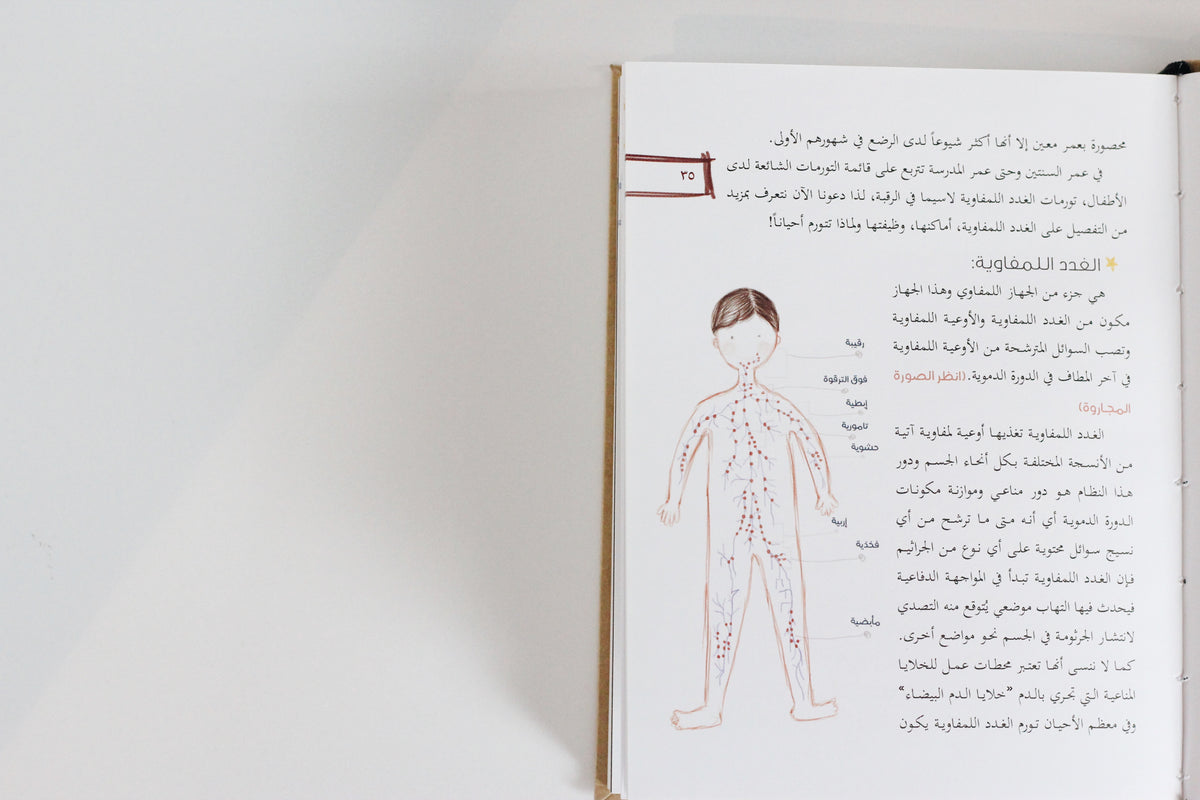 محصورة بعمر معين إلا أنها أكثر شيوعاً لدى الرضع في شهورهم الأولى.
في عمر السنتين وحتى عمر المدرسة تتربع على قائمة التورمات الشائعة لدى
٣٥
الأطفال، تورمات الغدد اللمفاوية لاسيما في الرقبة، لذا دعونا الآن نتعرف بمزيد
من التفصيل على الغدد اللمفاوية، أماكنها، وظيفتها ولماذا تتورم أحياناً!
الغدد اللمفاوية:
هي جزء من الجهاز اللمفاوي وهذا الجهاز
مكون من الغدد اللمفاوية والأوعية اللمفاوية
وتصب السوائل المترشحة من الأوعية اللمفاوية
في آخر المطاف في الدورة الدموية. (انظر الصورة
المجاروة)
الغدد اللمفاوية تغذيها أوعية لمفاوية آتية
من الأنسجة المختلفة بكل أنحاء الجسم ودور
هذا النظام هو دور مناعي وموازنة مكونات
الدورة الدموية أي أنه متى ما ترشح من أي
نسيج سوائل محتوية على أي نوع من الجراثيم
فإن الغدد اللمفاوية تبدأ في المواجهة الدفاعية
فيحدث فيها التهاب موضعي يُتوقع منه التصدي
لانتشار الجرثومة في الجسم نحو مواضع أخرى.
كما لا ننسى أنها تعتبر محطات عمل للخلايا
المناعية التي تجري بالدم «خلايا الدم البيضاء»
وفي معظم الأحيان تورم الغدد اللمفاوية يكون
رقيبة
فوق الترقوة
إبطية
تامورية
حشوية
إربية
فخذية
مأبضية